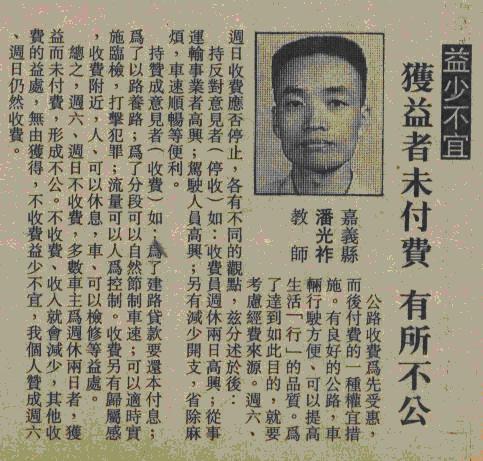 益少不宜
獲益者未付費 有所不公
嘉義縣
潘光祚
教師
公路收費爲先受惠，
而後付費的一種權宜措
施。有良好的公路，車
輛行駛方便、可以提高
生活「行」的品質。爲
了達到如此目的，就要
考慮經費來源。週六、
週日收費應否停止，各有不同的觀點，茲分述於後：
持反對意見者（停收）如：收費員週休兩日高興；從事
運輸事業者高興；駕駛人員高興；另有減少開支，省除麻
煩，車速順暢等便利。
持贊成意見者（收費）如：爲了建路貸款要還本付息；
爲了以路養路；爲了分段可以自然節制車速；可以適時實
施臨檢，打擊犯罪；流量可以人爲控制。收費另有歸屬感
，收費附近，人、可以休息，車、可以檢修等益處。
總之，週六、週日不收費，多數車主爲週休兩日者，獲
益而未付費，形成不公。不收費、收入就會減少，其他收
費的益處，無由獲得，不收費益少不宜，我個人贊成週六
、週日仍然收費。